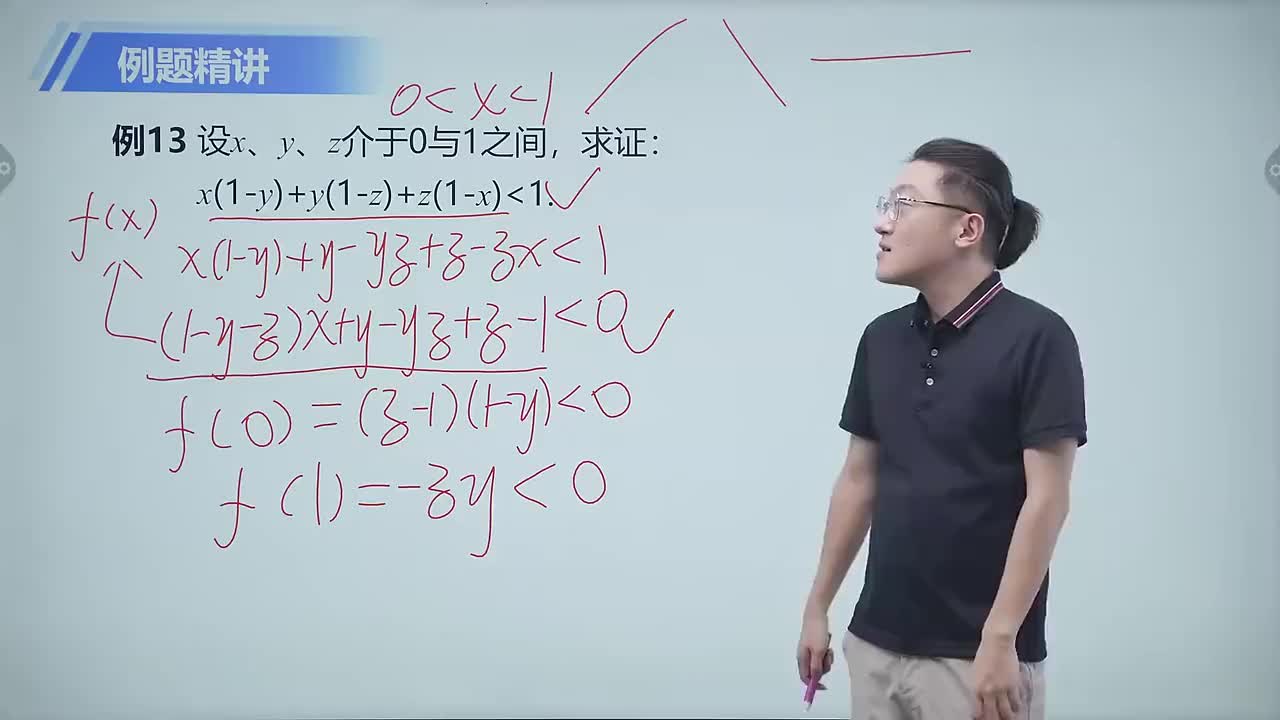 例题精讲
0<x<1
例13 设x、y、z介于0与1之间，求证：
x(1-y)+y(1-z)+z(1-x)<1.
f(x)
x(1-y)+y-yz+z-zx<1
(1-y-z)x+y-yz+z-1<0
f(0)=(z-1)(1-y)<0
f(1)=-zy<0